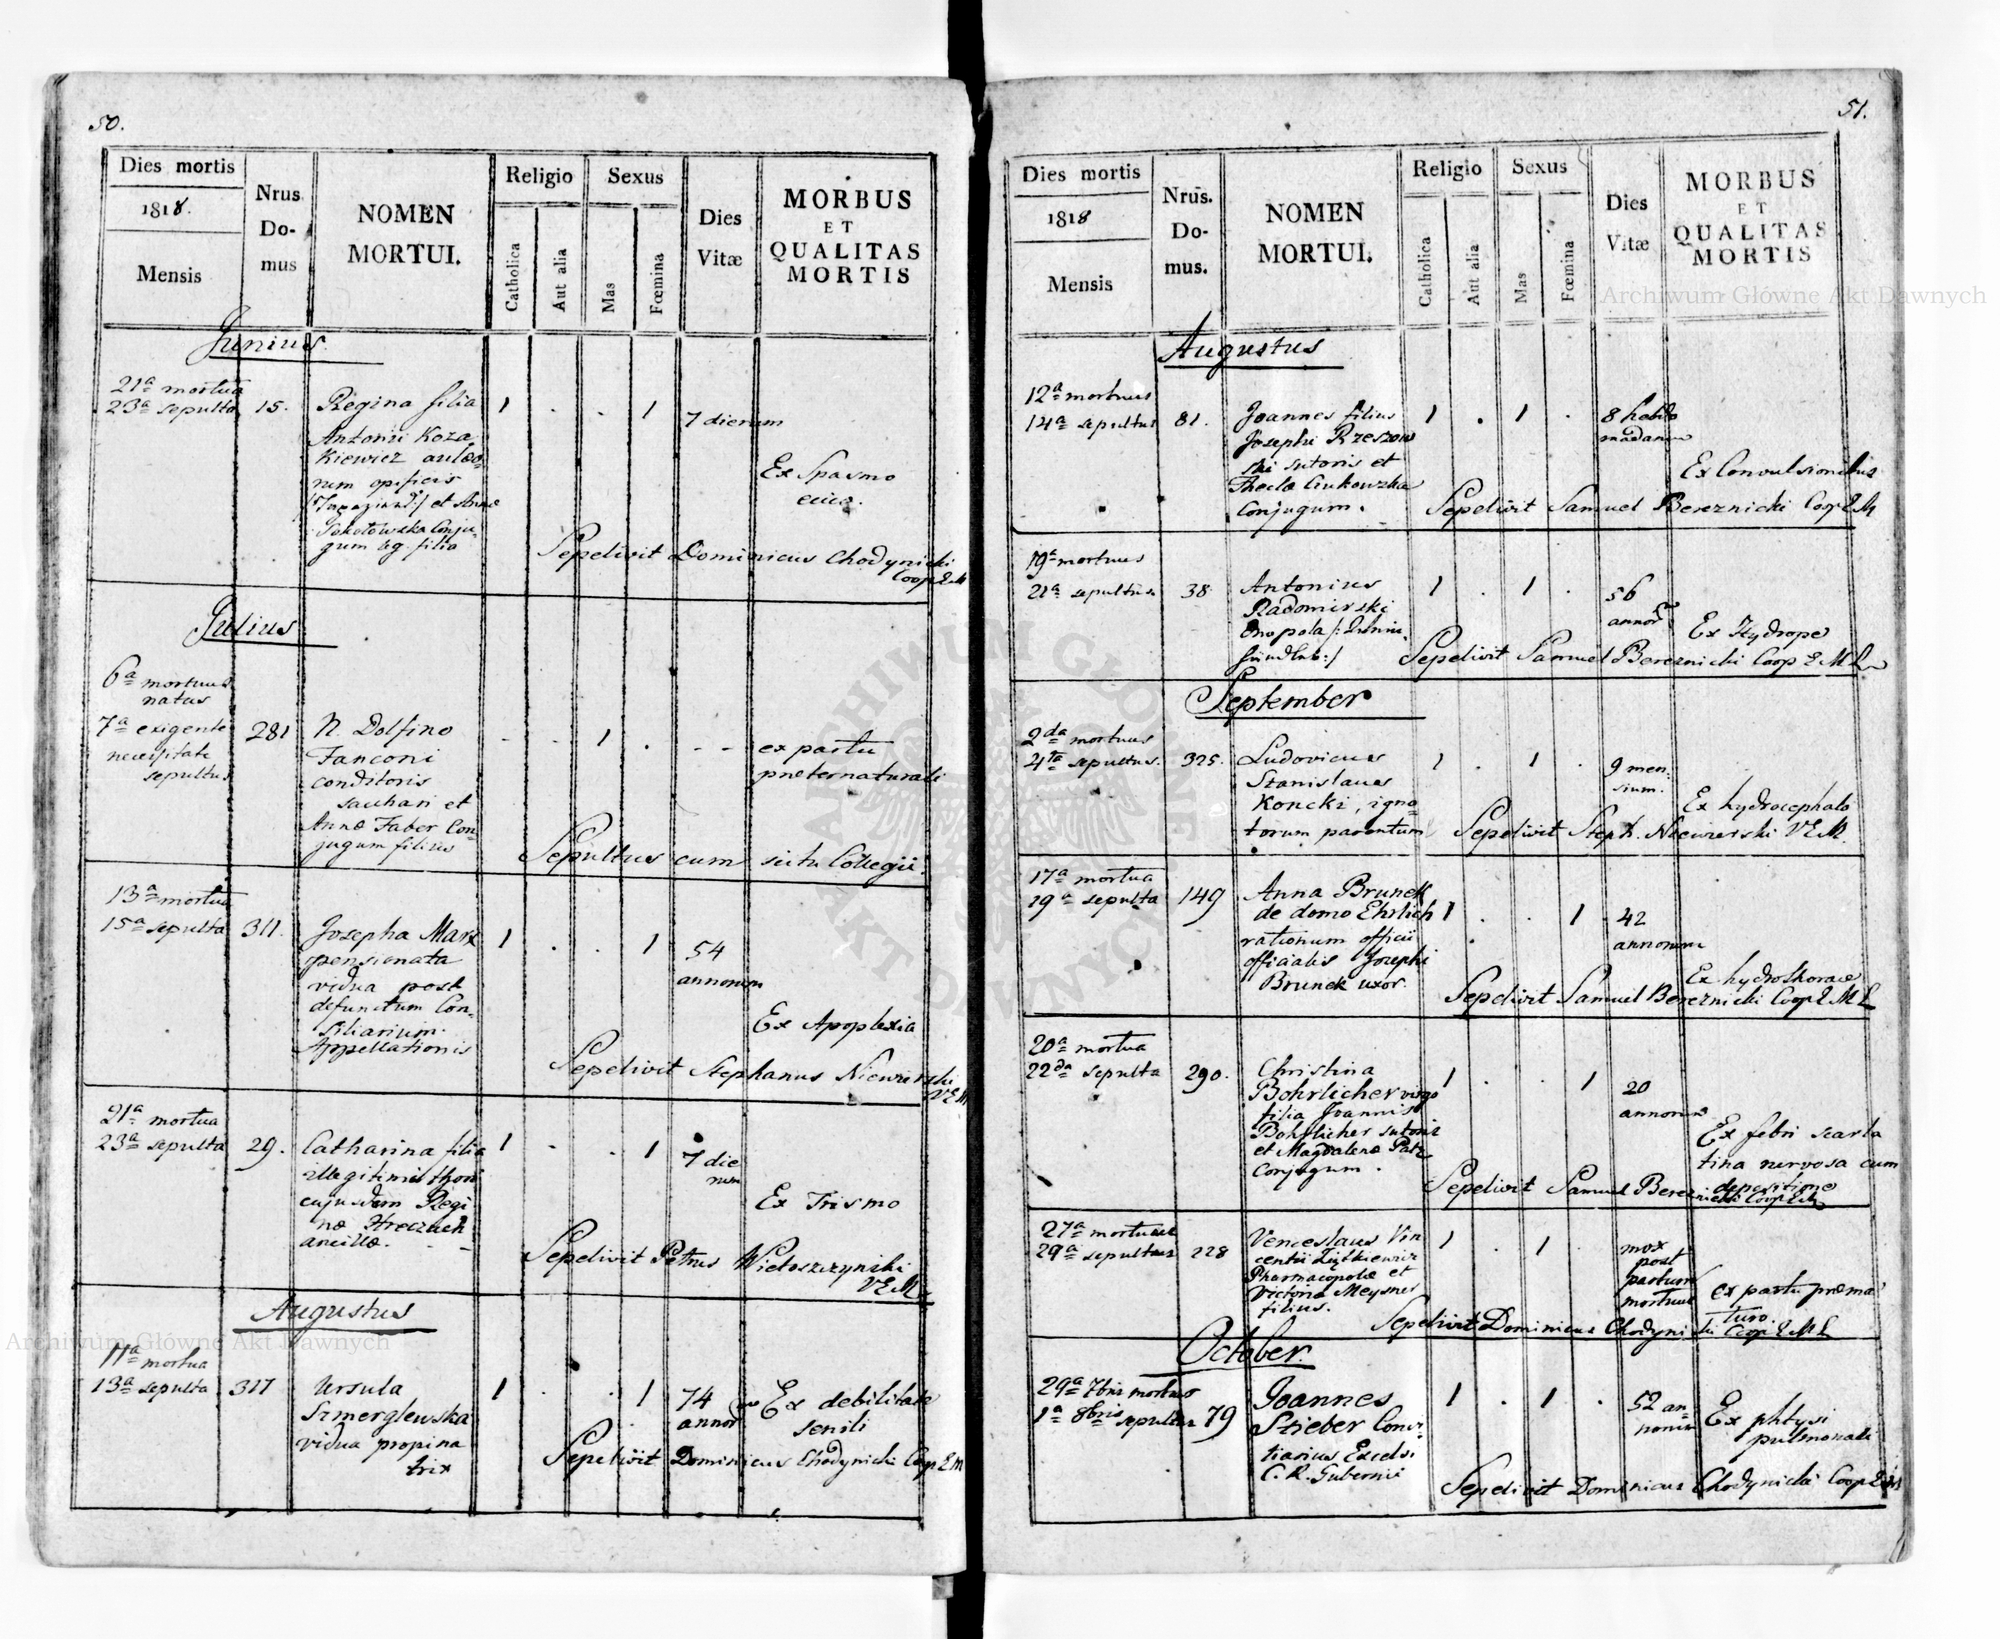 50.
Dies mortis
1818.
Mensis
Nrus
Do-
mus
NOMEN
MORTUI.
Religio
Catholica
Aut alia
Sexus
Mas
Fœmina
Dies
Vitæ
MORBUS
ET
QUALITAS
MORTIS
Junius.
21ª mortua
23ª sepulta 15. Regina filia 1 . . 1 7 dierum
Antonii Koza
kiewicz aulæo-
rum opificis
et Annæ
Sokołowska Conju-
gum leg. filia
Ex Spasmo
Sepelivit Dominicus Chodynicki
Coop E.M
Julius
6ª mortuus
natus
7ª exigente
necessitate
sepultus
281 N. Dolfino - - 1 . - -
Fanconi
conditoris
sacchari et
Annæ Faber Con-
jugum filius
ex partu
præternaturali
Sepultus cum scitu Collegii.
13ª mortua
15ª sepulta 311. Josepha Marx 1 . . 1 54
annorum
pensionata
vidua post
defunctum Con-
siliarium
Appellationis
Ex Apoplexia
Sepelivit Stephanus Niewierski
V.E.M
21ª mortua
23ª sepulta 29. Catharina filia 1 . . 1 7 die
rum
illegitimi thori
cujusdem Regi
næ Hreczuch
ancillæ.
Ex Trismo
Sepelivit Petrus Wieloszczynski
V.E.M.
Augustus
11ª mortua
13ª sepulta 317 Ursula 1 . . 1 74
annor
Szmerglewska
vidua propina
trix
Ex debilitate
senili
Sepelivit Dominicus Chodynicki Coop E M
51.
Dies mortis
1818
Mensis
Nrus.
Do-
mus.
NOMEN
MORTUI.
Religio
Catholica
Aut alia
Sexus
Mas
Fœmina
Dies
Vitæ
MORBUS
ET
QUALITAS
MORTIS
Augustus
12ª mortuus
14ª sepultus 81. Joannes filius 1 . 1 . 8 hebdo
madarum
Josephi Rzeszow
ski sutoris et
Theclæ
Conjugum.
Ex Convulsionibus
Sepelivit Samuel Bereznicki Coop E M
19ª mortuus
21ª sepultus 38 Antonius 1 . 1 . 56
annor
Radomirski
Ex Hydrope
Sepelivit Samuel Bereznicki Coop E. M L
September
2da mortuus
4ta sepultus. 325. Ludovicus 1 . 1 . 9 men-
sium.
Stanislaus
Koncki, igno-
torum parentum
Ex hydrocephalo
Sepelivit Steph. Niewierski V E M.
17ª mortua
19ª sepulta 149 Anna Brunek
de domo Ehrlich 1 . . 1 42
annorum
rationum officii
officialis Josephi
Brunek uxor.
Ex hydrothorace
Sepelivit Samuel Bereznicki Coop E M L
20ª mortua
22da sepulta 290. Christina 1 . . 1 20
annorum
Bohrlicher virgo
filia Joannis
Bohrlicher sutoris
et Magdalenæ Patz
Conjugum.
Ex febri scarla
tina nervosa cum
depositione
Sepelivit Samuel Bereznicki Coop E M
27ª mortuus
29ª sepultus 228 Venceslaus Vin 1 . 1 . mox
post
partum
mortuus
centii
Pharmacopolæ et
Victoria Meysner
filius.
ex partu præma
turo.
Sepelivit Dominicus Chodynicki Coop E M L
October.
29ª 7bris mortuus
1ª 8bris sepultus 79 Joannes 1 . 1 . 52 an-
norum
Stieber Consi-
liarius Excelsi
C. R. Gubernii
Ex phtysi
pulmonali
Sepelivit Dominicus Chodynicki Coop E M
Archiwum Główne Akt Dawnych
Archiwum Główne Akt Dawnych
ARCHIWUM GŁÓWNE AKT DAWNYCH